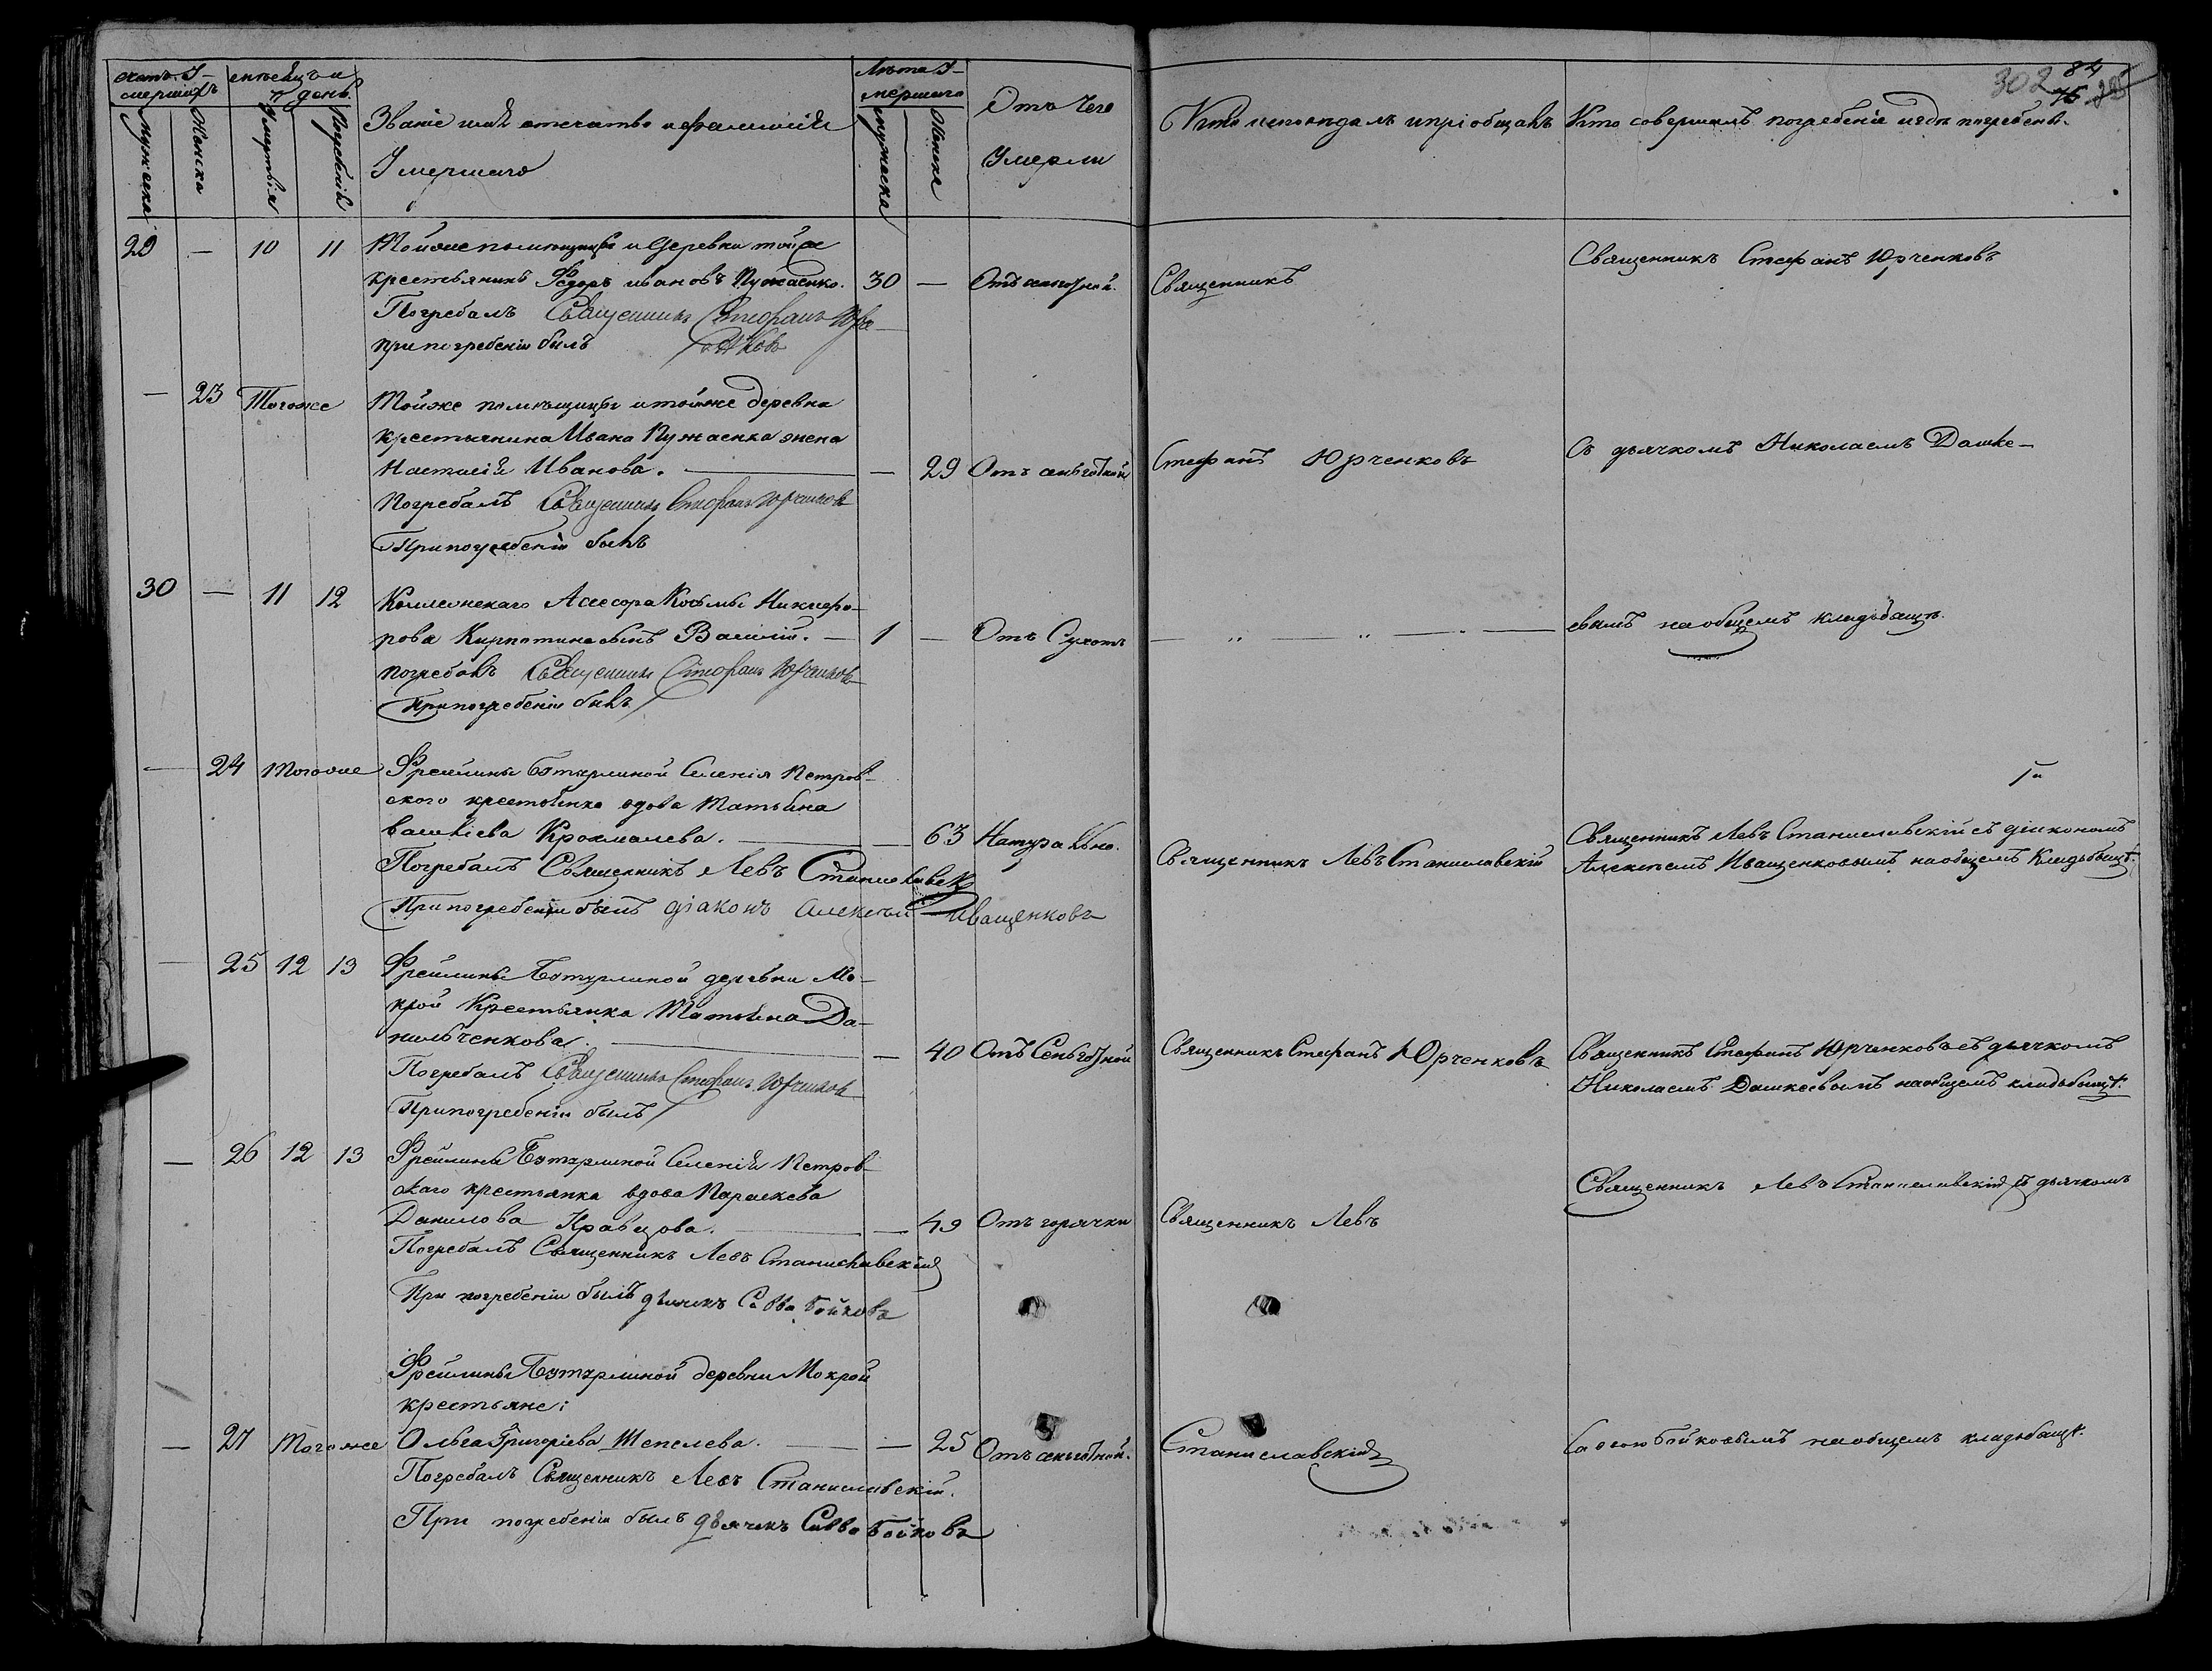 счетъ У-
мершихъ
мѣсяцъ и
день
Мужеска
Женска
Умертвія
Погребенія
Званіе имя отечество и фамилія
Умершаго
Лѣта У-
мершаго
мужеска
Женска
Отъ чего
Умерли
Кто исповѣдалъ и пріобщалъ
Кто совершалъ погребеніе и гдѣ погребены.
302
84
75
29 — 10 11 Тойже помѣщицы и деревни тойже
крестьянинъ Федоръ Ивановъ Пужаенко. 30 —
Погребалъ Священникъ Стефанъ Юрченковъ
при погребеніи былъ
Священникъ
Священникъ Стефанъ Юрченковъ
— 23 Тогоже Тойже помѣщицы и тойже деревни
крестьянина Ивана Пужаенка жена
Настасія Иванова. — 29
Погребалъ Священникъ Стефанъ Юрченковъ
При погребеніи былъ
Стефанъ Юрченковъ
Съ дьячкомъ Николаемъ Дашке-
30 — 11 12 Коллежскаго Асесора Козьмы Никифо-
рова сынъ Василій. — 1 — Отъ Сухотъ
погребалъ Священникъ Стефанъ Юрченковъ
При погребеніи былъ
— „ — „ —
евымъ на общемъ кладьбищѣ.
— 24 Тогоже Фрейлины Бутурлиной Селенія Петров-
ского крестьянка вдова Татьяна
Крохмалева. — 63 Натурально.
Погребалъ Священникъ Левъ Станиславскій
При погребеніи былъ діаконъ Алексѣй Иващенковъ
Священникъ Левъ Станиславскій
Священникъ Левъ Станиславскій съ діякономъ
Алексѣемъ Иващенковымъ на общемъ Кладьбищѣ.
— 25 12 13 Фрейлины Бутурлиной деревни Мо-
крой Крестьянка Татьяна Да-
нильченкова. — 40
Погребалъ Священникъ Стефанъ Юрченковъ
При погребеніи былъ
Священникъ Стефанъ Юрченковъ
Священникъ Стефанъ Юрченковъ съ дьячкомъ
Николаемъ Дашкеевымъ на общемъ кладьбищѣ.
— 26 12 13 Фрейлины Бутурлиной Селенія Петров-
скаго крестьянка вдова Параскева
Данилова Кравцова. — 49 Отъ горячки
Погребалъ Священникъ Левъ Станиславскій
При погребеніи былъ дьячекъ Савва Бойковъ
Священникъ Левъ
Священникъ Левъ Станиславскій съ дьячкомъ
Фрейлины Бутурлиной деревни Мокрой
крестьяне:
— 27 Тогоже Ольга Григоріева Шепелева. — 25
Погребалъ Священникъ Левъ Станиславскій.
При погребеніи былъ дьячекъ Савва Бойковъ
Станиславскій
Саввою Бойковымъ на общемъ кладьбищѣ.